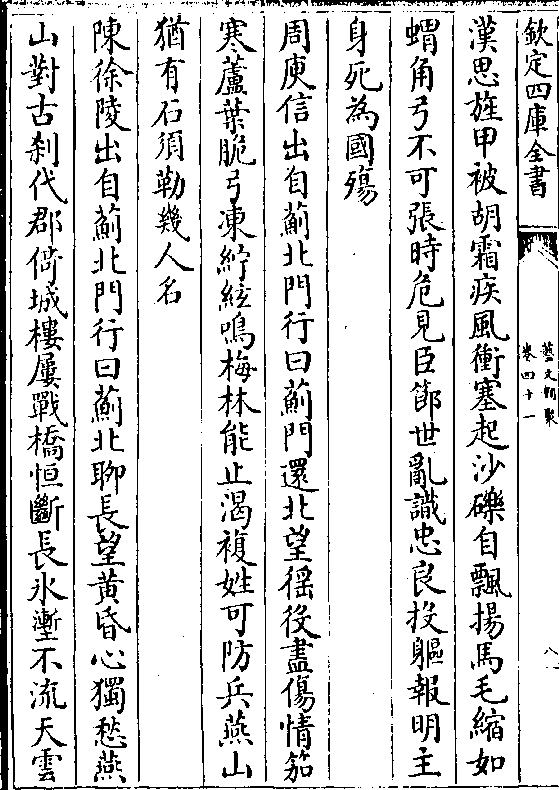 欽定四庫全書
藝文類聚
卷四十一
八
漢思旌甲被胡霜疾風衝塞起沙礫自飄揚馬毛縮如
蝟角弓不可張時危見臣節世亂識忠良投軀報明主
身死為國殤
周庾信出自薊北門行曰薊門還北望徭役盡傷情笳
寒蘆葉脆弓凍紵絃鳴梅林能止渴複姓可防兵燕山
猶有石須勒幾人名
陳徐陵出自薊北門行曰薊北聊長望黃昏心獨愁燕
山對古刹代郡倚城樓屢戰橋恒斷長氷壍不流天雲